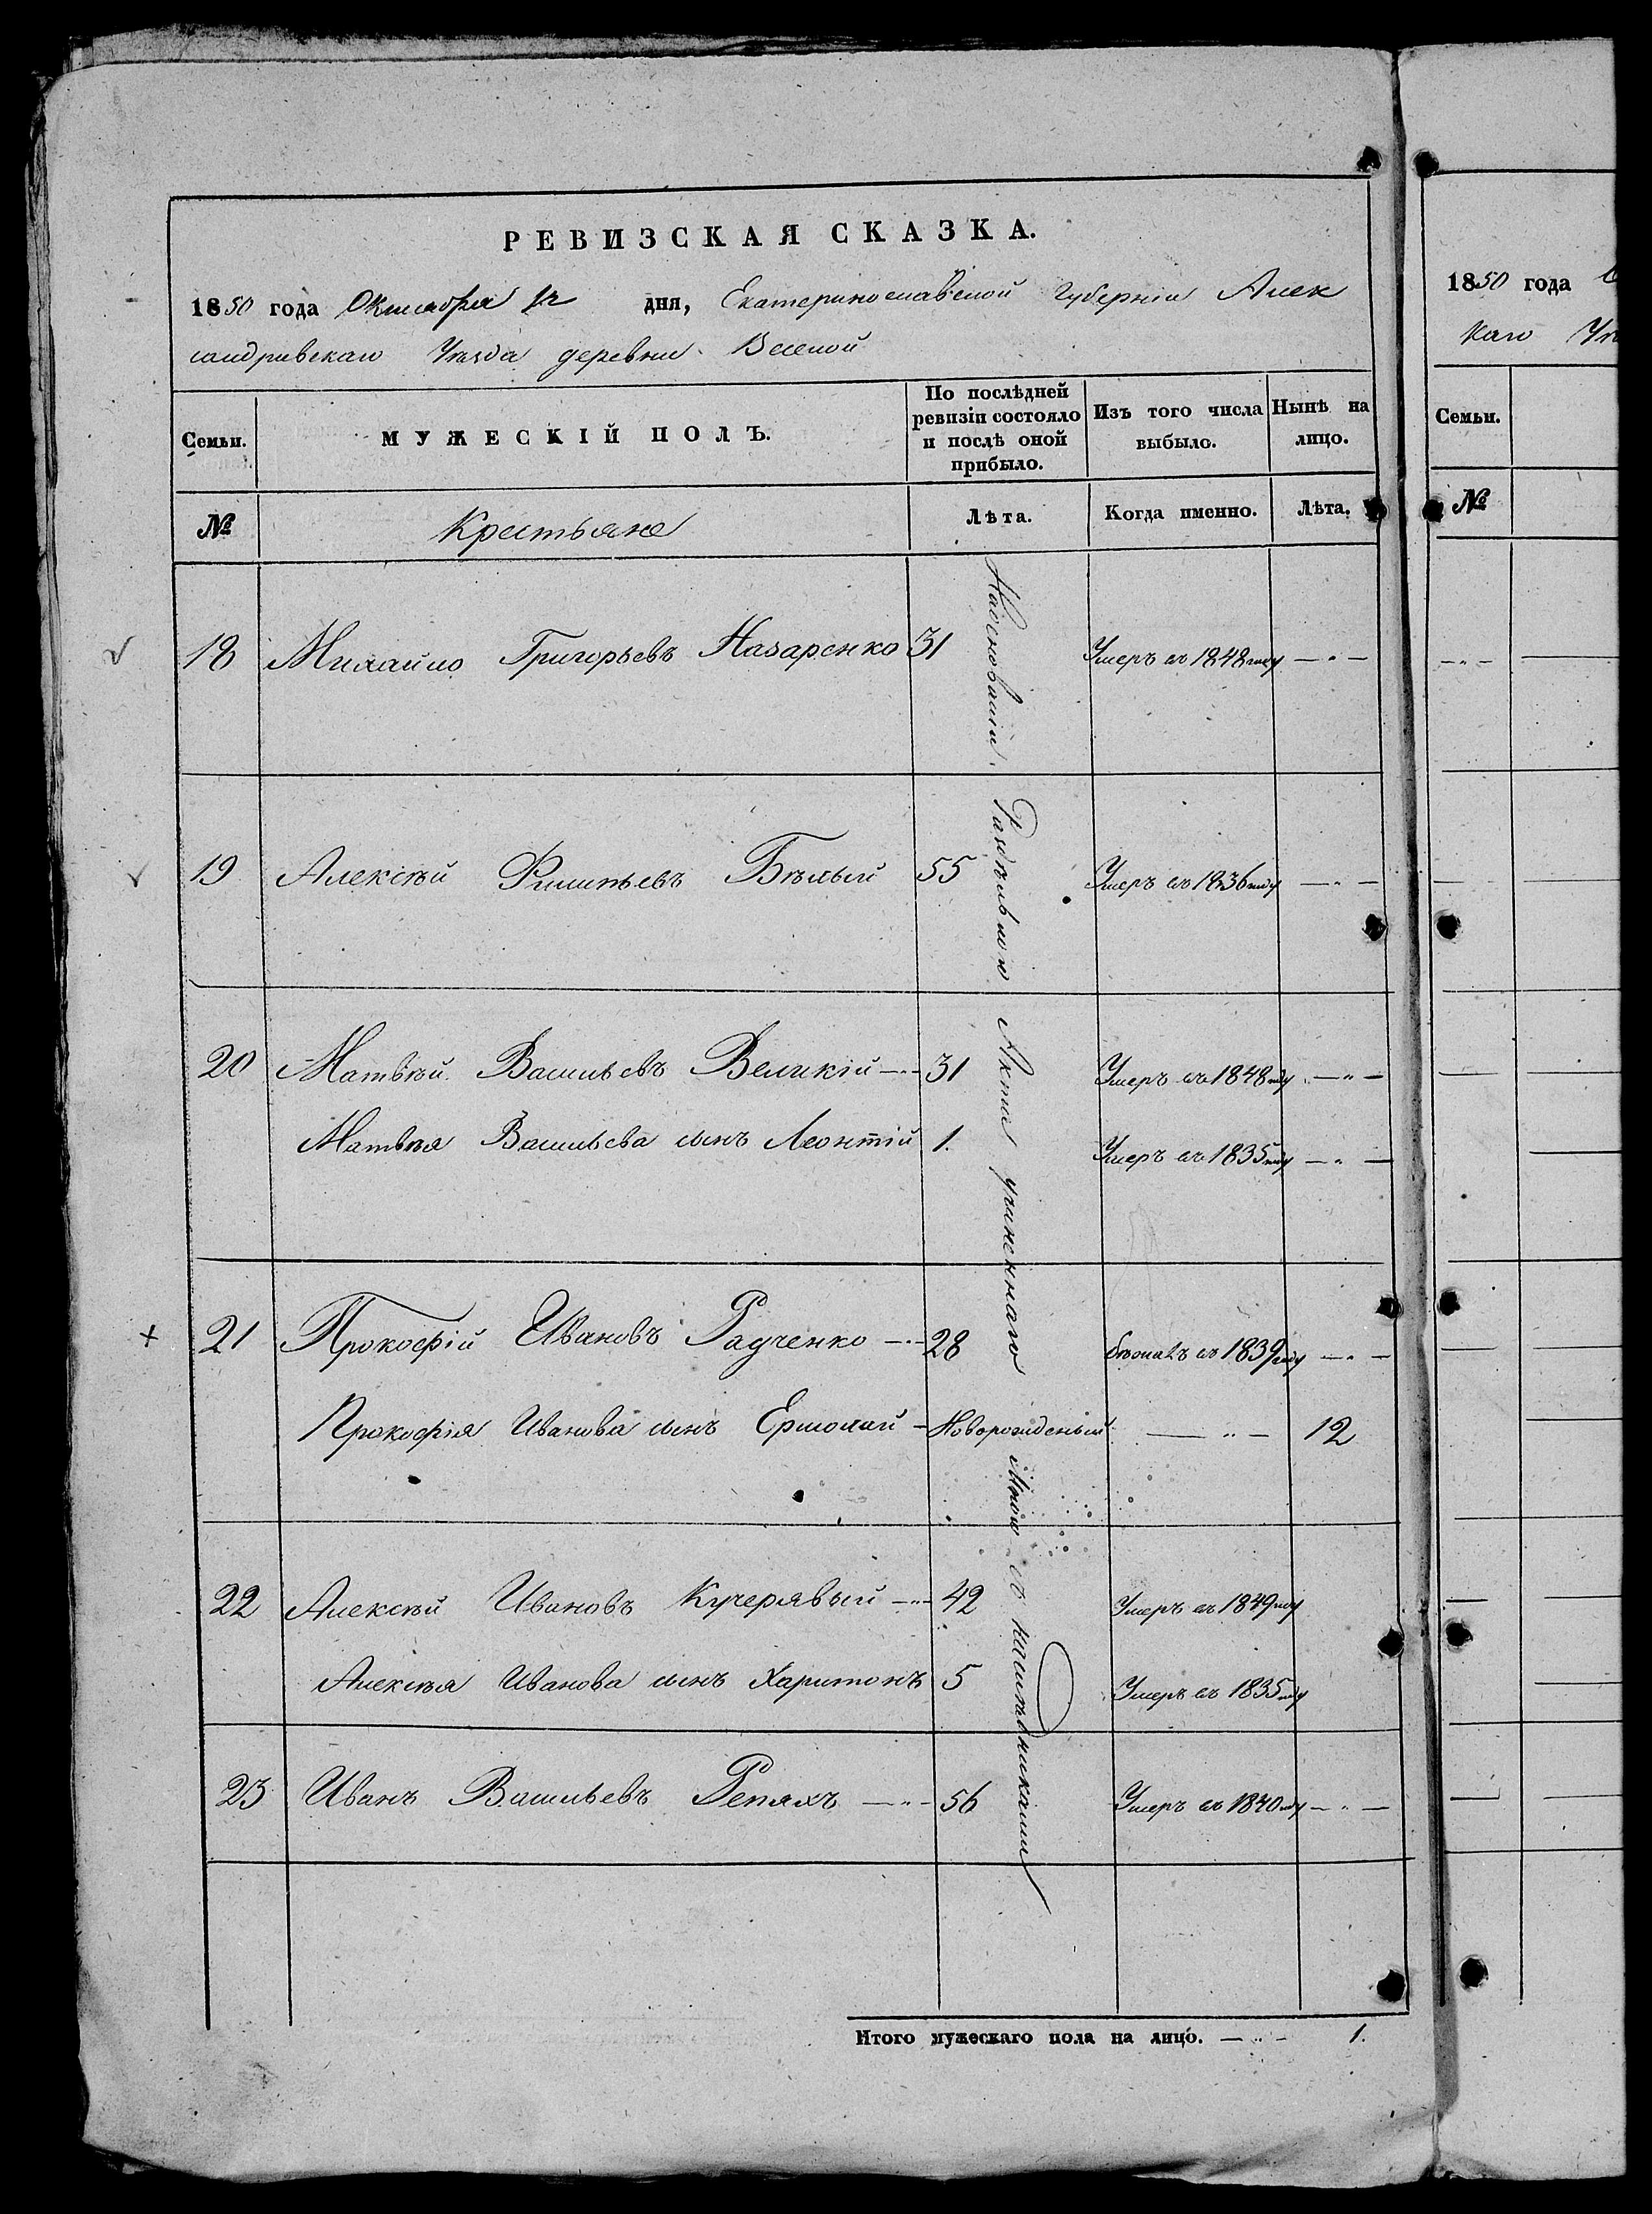 РЕВИЗСКАЯ СКАЗКА.
1850 года Октября дня, Екатеринославской Губерніи Алек
сандривскаго Уѣзда деревни Веселой
Семьи. МУЖЕСКІЙ ПОЛЪ. По послѣдней ревизіи состояло и послѣ оной прибыло. Изъ того числа выбыло. Нынѣ на лицо.
№ Крестьяне Лѣта. Когда именно. Лѣта.
18 Михайло Григорьевъ Назаренко 31 Умеръ въ 1848 году — " —
19 Алексѣй Филипьевъ Бѣлый 55 Умеръ въ 1836 году — " —
20 Матвѣй Васильевъ Великій — " — 31 Умеръ въ 1848 году — " —
Матвѣя Васильева сынъ Леонтій 1. Умеръ въ 1835 году — " —
21 Прокофій Ивановъ Радченко — " — 28 въ 1839 году — " —
Прокофія Иванова сынъ Ермолай — Новорожденый — " — 12
22 Алексѣй Ивановъ Кучерявый — " — 42 Умеръ въ 1849 году
Алексѣя Иванова сынъ Харитонъ 5 Умеръ въ 1835 году
23 Иванъ Васильевъ Репяхъ — " — 56 Умеръ въ 1840 году — " —
На основаніи Раздѣльнаго Акта учиненнаго Мной съ наслѣдниками
Итого мужескаго пола на лицо. — " — 1.
1850 года
каго
Семьи.
№